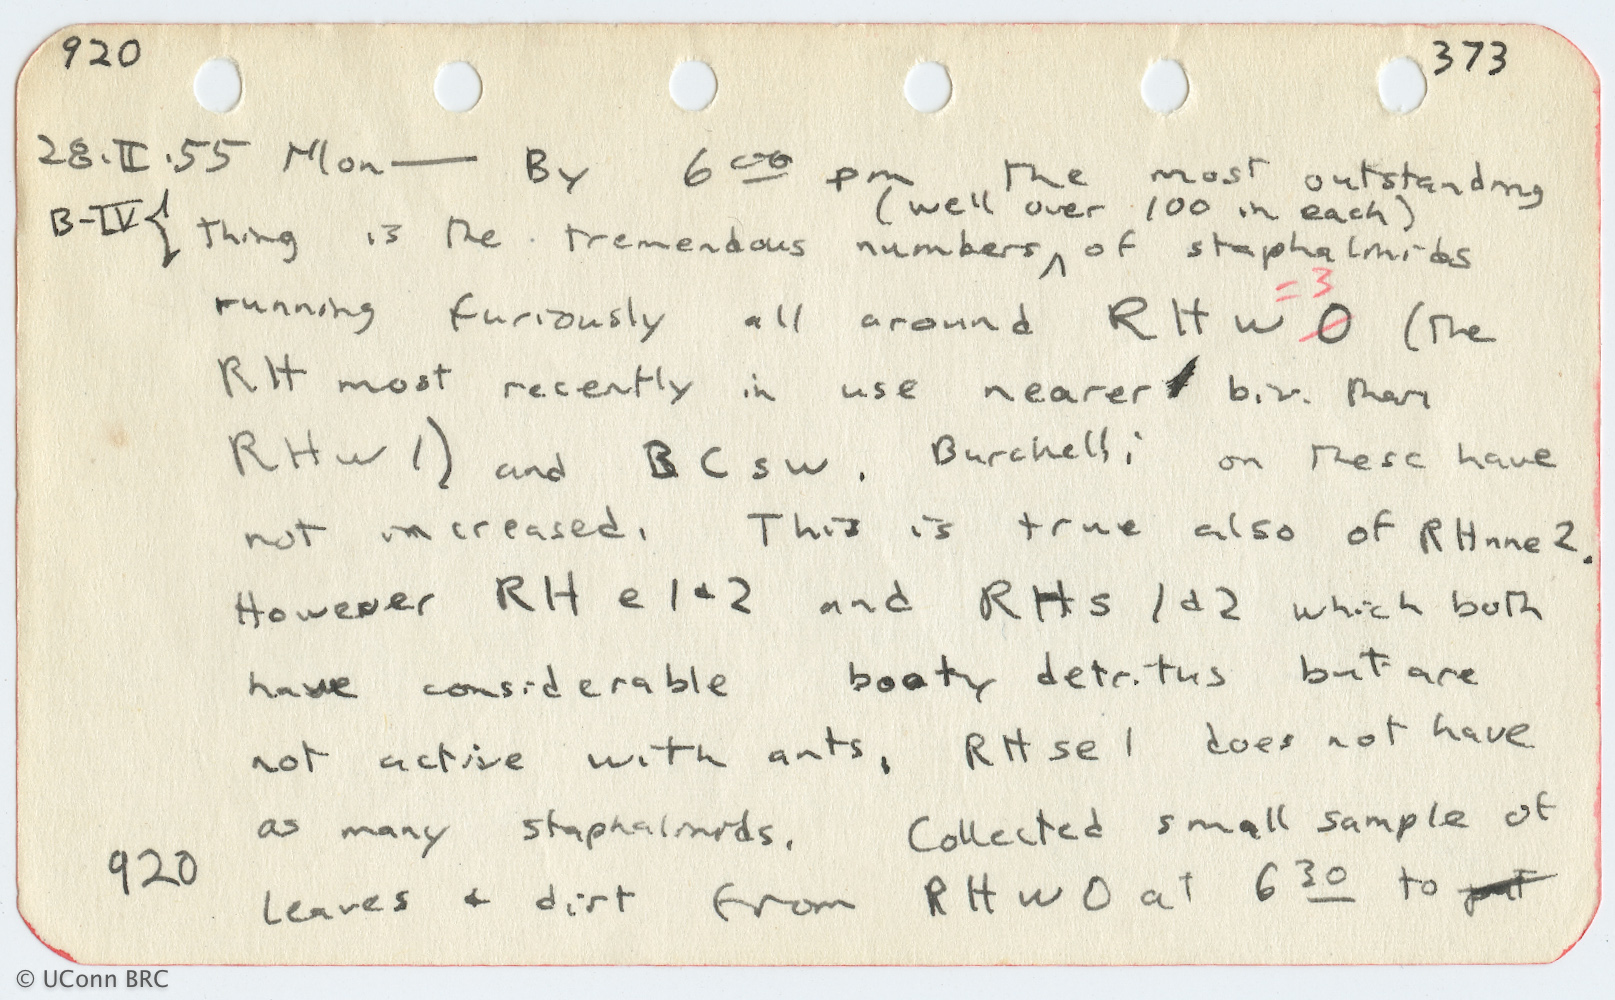 920 373
28.II.55 Mon— By 6 00 pm the most outstanding
(well over 100 in each)
B-IV{ thing is the tremendous numbers ^ of staphalinids
=3
running furiously all around RHw0 (the
RH most recently in use nearer biv. than
RHw1) and BCsw. Burchelli on these have
not increased. This is true also of RHnne2.
However RHe1&2 and RHs1&2 which both
have considerable booty detritus but are
not active with ants. RHse1 does not have
as many staphalinids. Collected small sample of
920 leaves & dirt from RHw0 at 6 30 to put
© UConn BRC